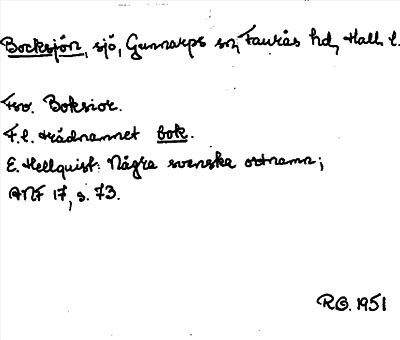 Bocksjön, sjö, Gunnarps sn, Faurås hd, Hall. l.
Fsv. Boksior.
F.l. trädnamnet bok.
E. Hellquist: Några svenska ortnamn;
ANF 17, s. 73.
RG. 1951